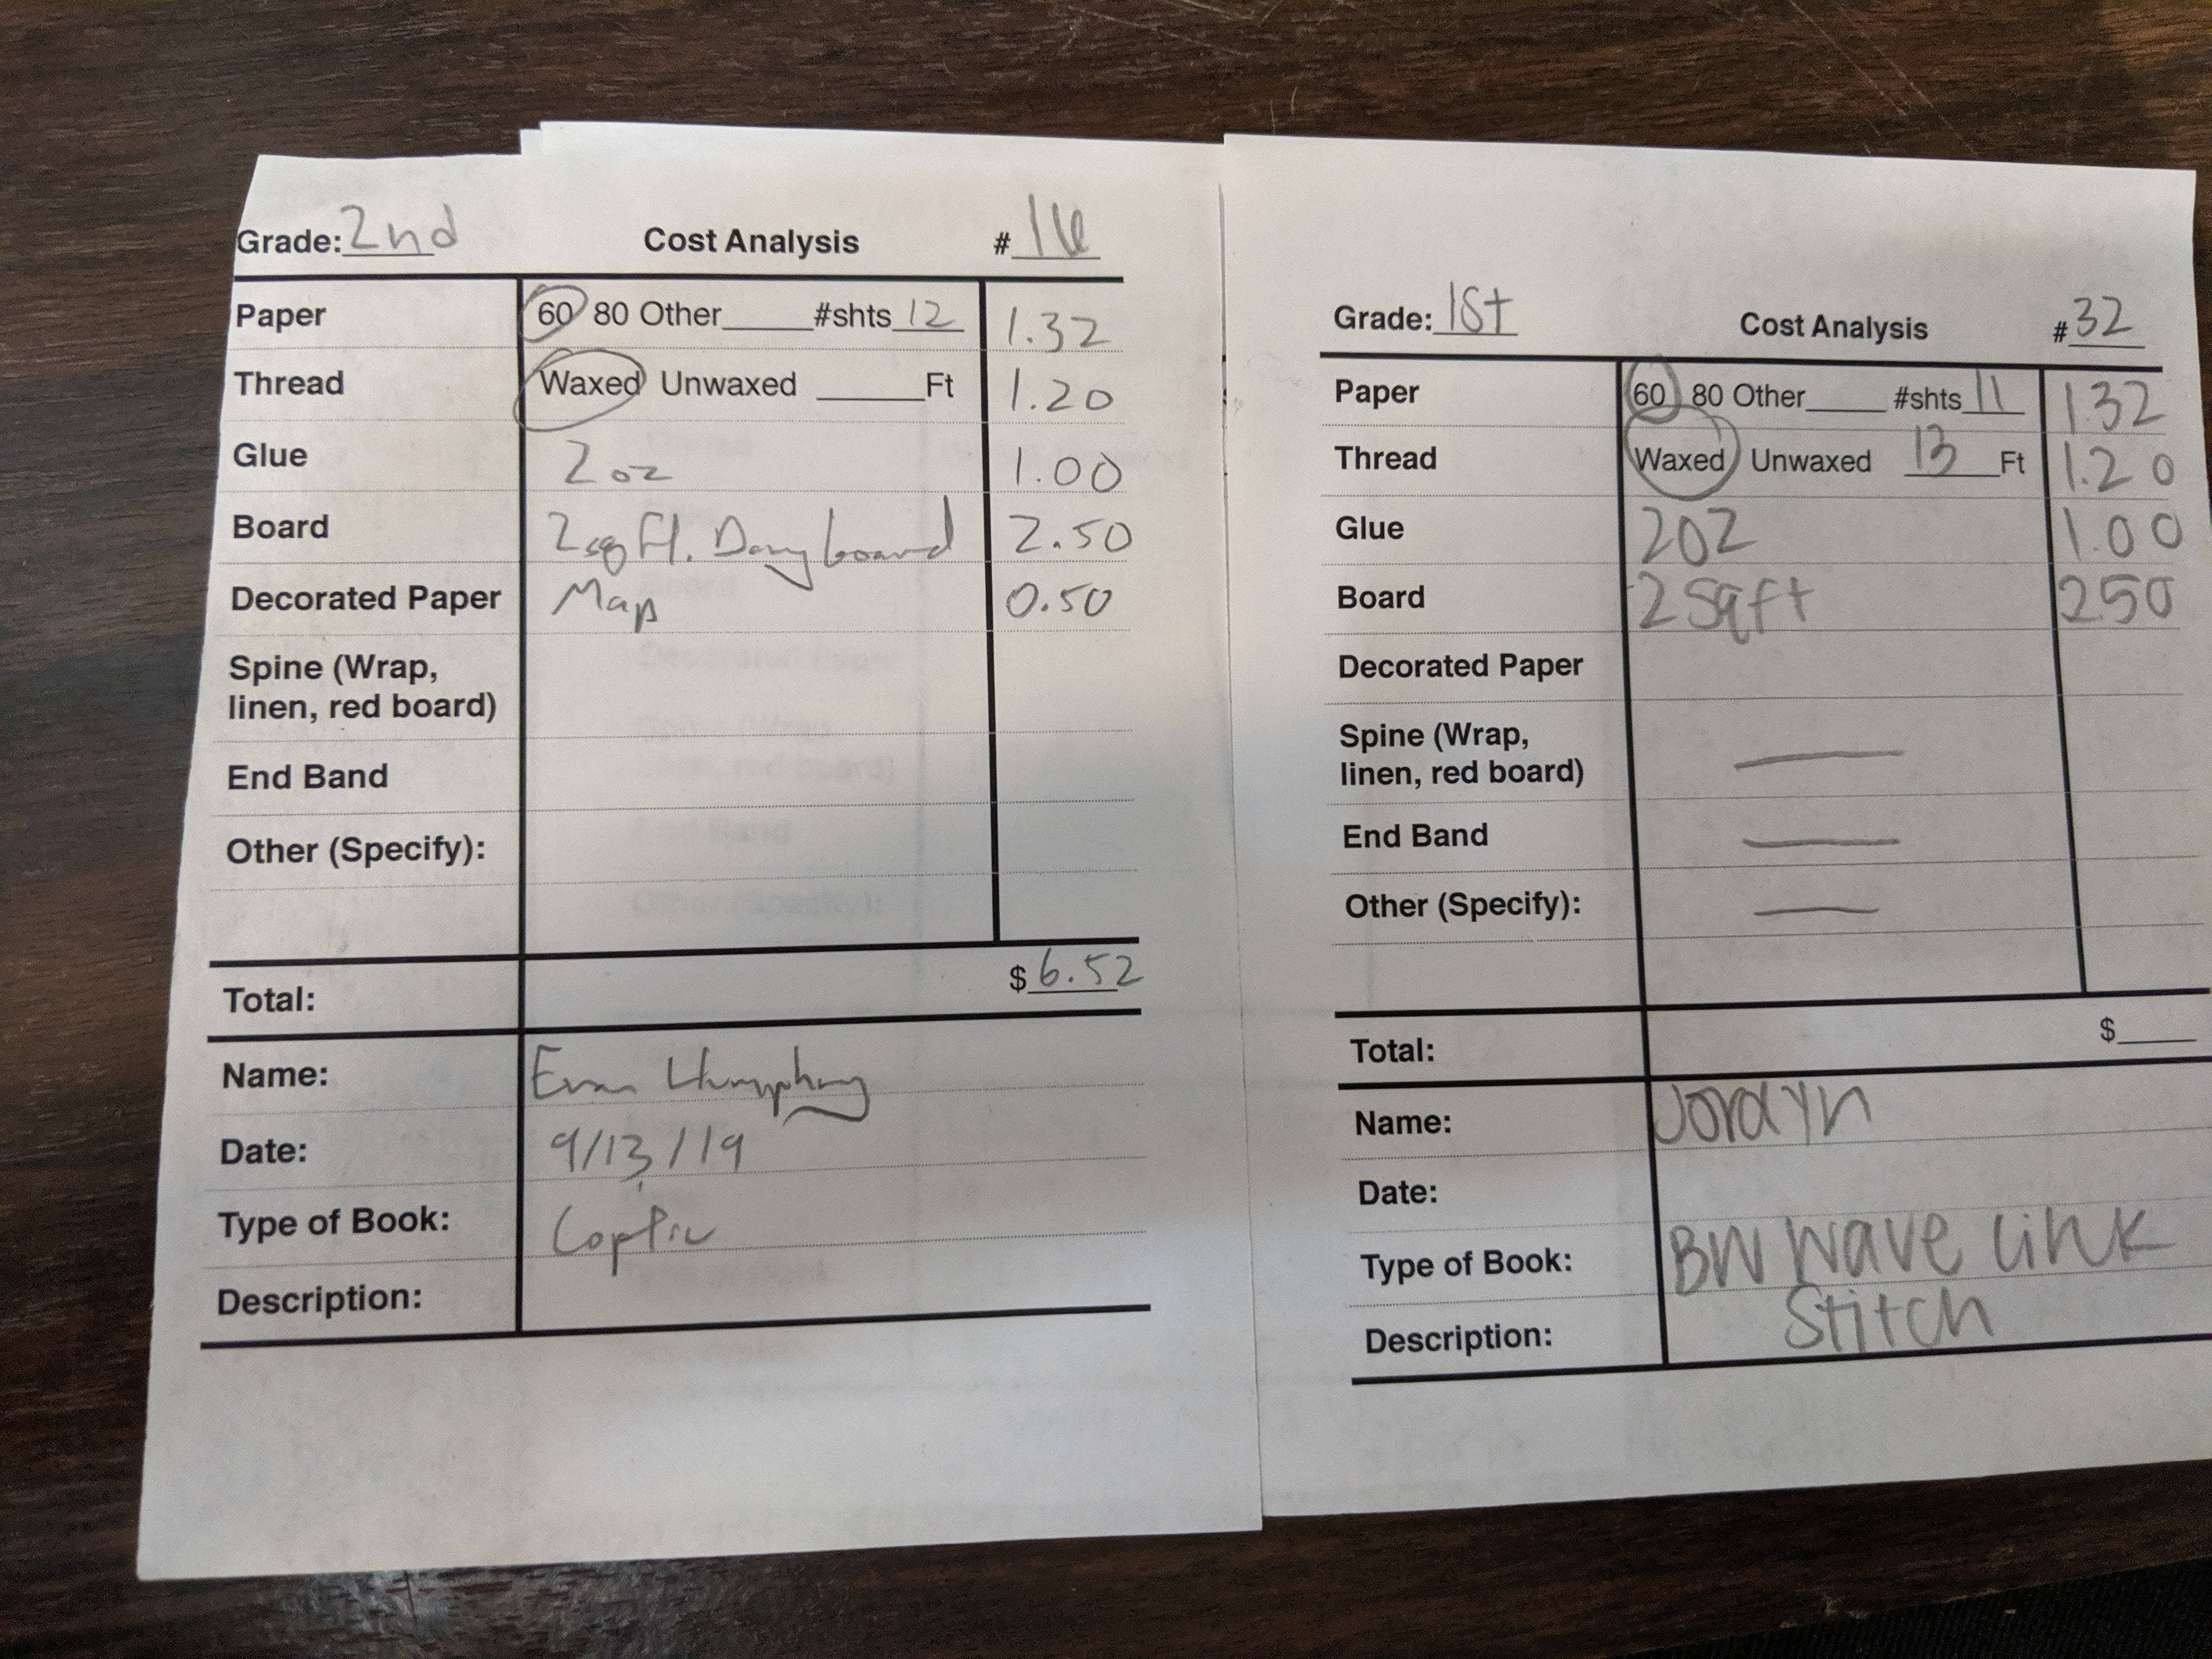 Grade: 2nd Cost Analysis # 16
Paper 60 80 Other____ #shts 12 1.32
Thread Waxed Unwaxed ____Ft 1.20
Glue 2oz 1.00
Board 2sqft. Daveyboard 2.50
Decorated Paper Map 0.50
Spine (Wrap,
linen, red board)
End Band
Other (Specify):
Total: $6.52
Name: Evan Humphrey
Date: 9/13/19
Type of Book: Coptic
Description:
Grade: 1st Cost Analysis # 32
Paper 60 80 Other____ #shts 11 1.32
Thread Waxed Unwaxed 13 Ft 1.20
Glue 2OZ 1.00
Board 2 Sqft 250
Decorated Paper
Spine (Wrap,
linen, red board)
End Band
Other (Specify):
Total: $____
Name: Jordyn
Date:
Type of Book: BW Wave Link
Description: Stitch